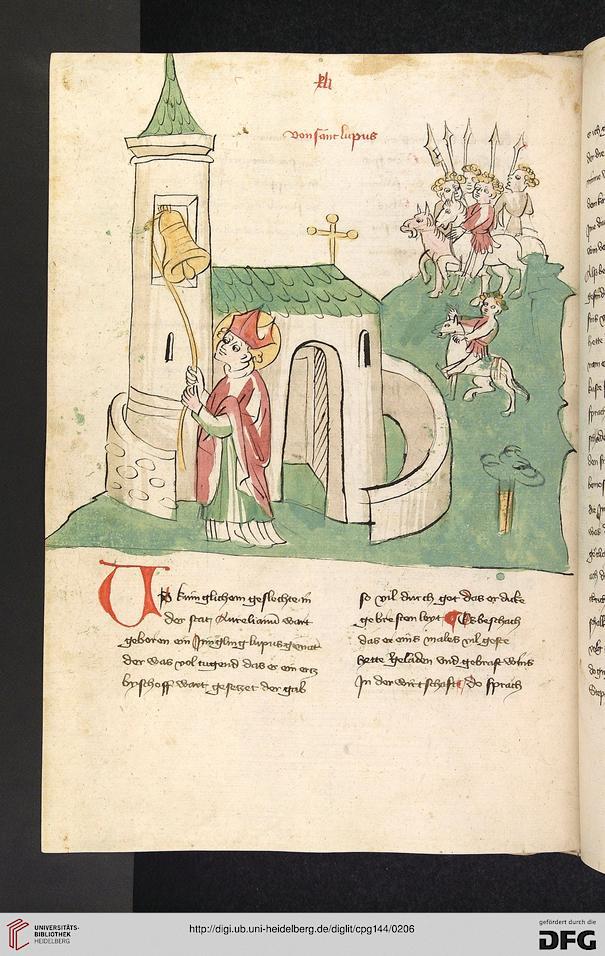 xli
von sant lupus
Uß kúnglichem geslechte in
der stat Aurelianū wart
geboren ein Jungling lupus genāt
der was vol tugend das er ein ertz
byschoff wart gesetzet der gab
so vil durch got das er dicke
gebresten leyt Es beschach
das er eins males vil geste
hette geladen vnd gebrast wins
Jn der wúrtschaft do sprach
UNIVERSITÄTS-
BIBLIOTHEK
HEIDELBERG
http://digi.ub.uni-heidelberg.de/diglit/cpg144/0206
gefördert durch die
DFG